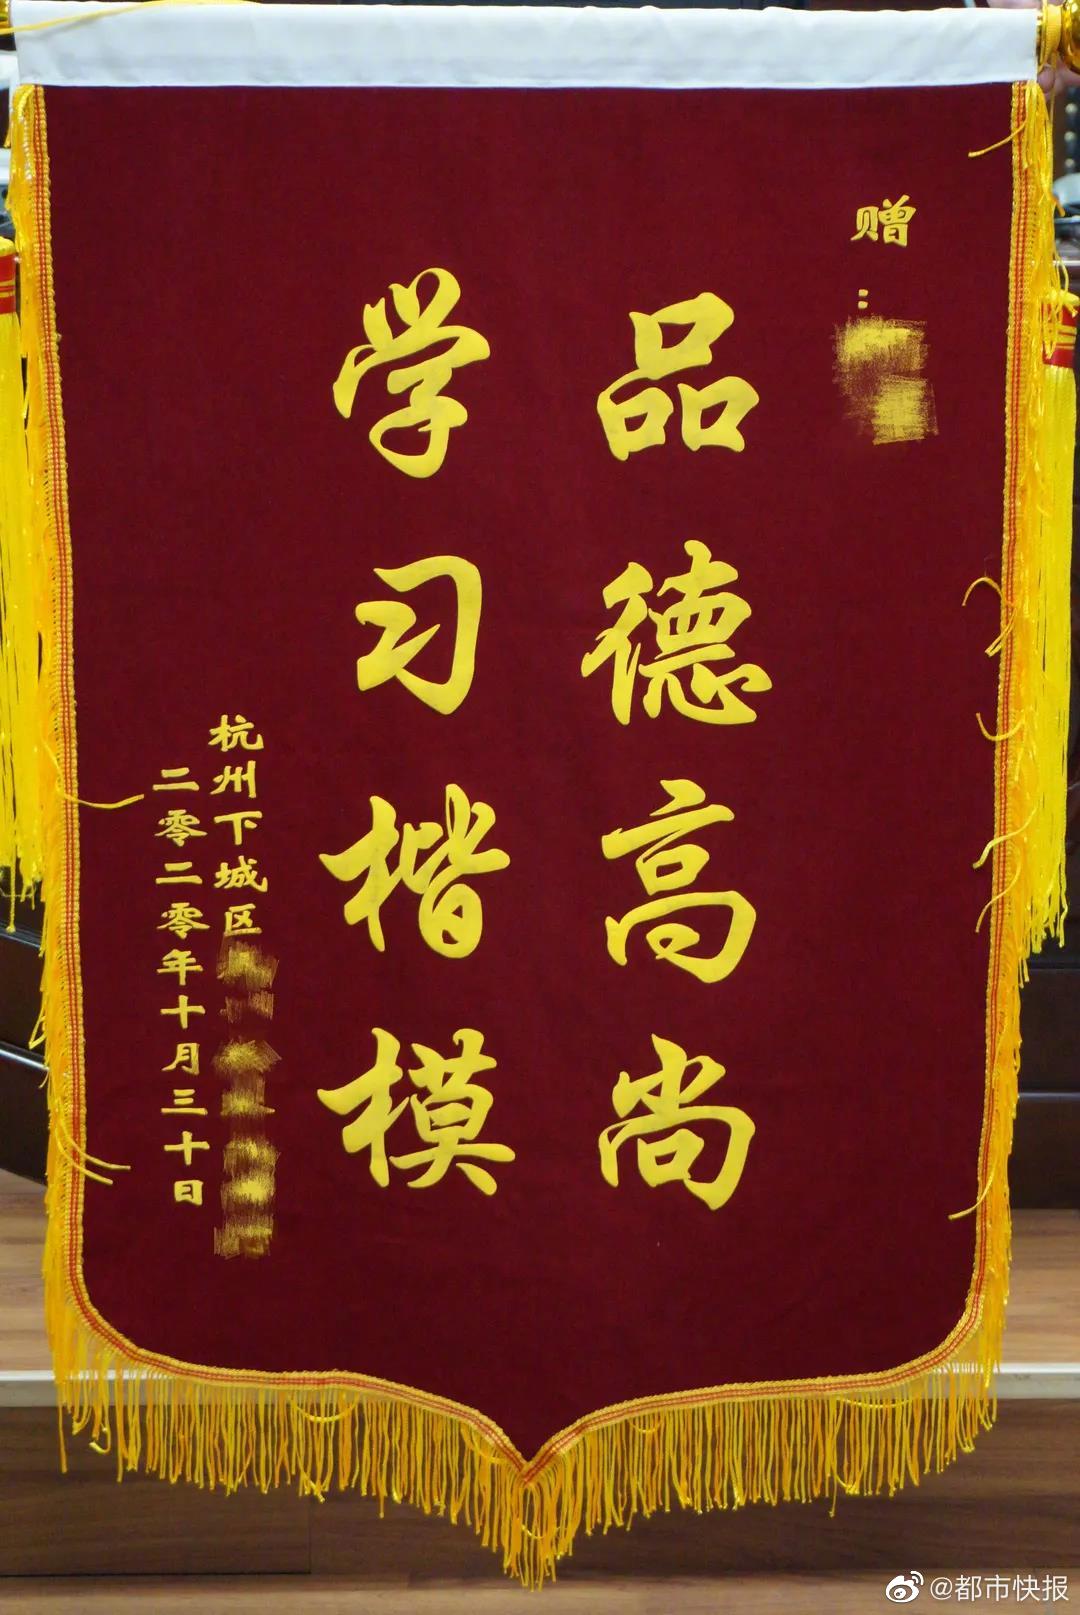 赠：
品德高尚
学习楷模
杭州下城区
二零二零年十月三十日
@都市快报